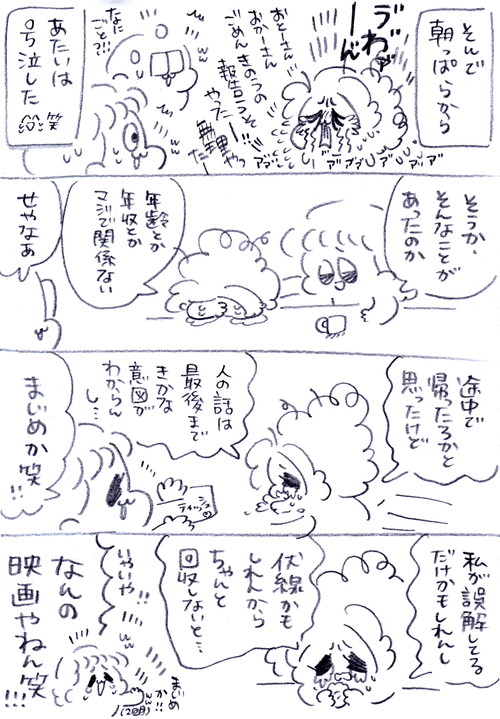 そんで
朝っぱらから
ゔわぁ
ーん
おとーさん
おかーさん
ごめんきのうの
報告うそ
やったー!!
無理やっ
たー
アァ
アァァ
なに
ごと?!!
あたいは
号泣した
笑
そうか、
そんなことが
あったのか
年齢とか
年収とか
マジで関係ない
せやなあ
途中で
帰ったろかと
思ったけど
人の話は
最後まで
きかな
意図が
わからん
し…
ティッシュ
まじめか笑
!!
私が誤解してる
だけかもしれんし
伏線かも
しれんから
ちゃんと
回収しないと…
いやいや!!
なんの
映画やねん笑
!!!
まじめ
か!!
(2回目)